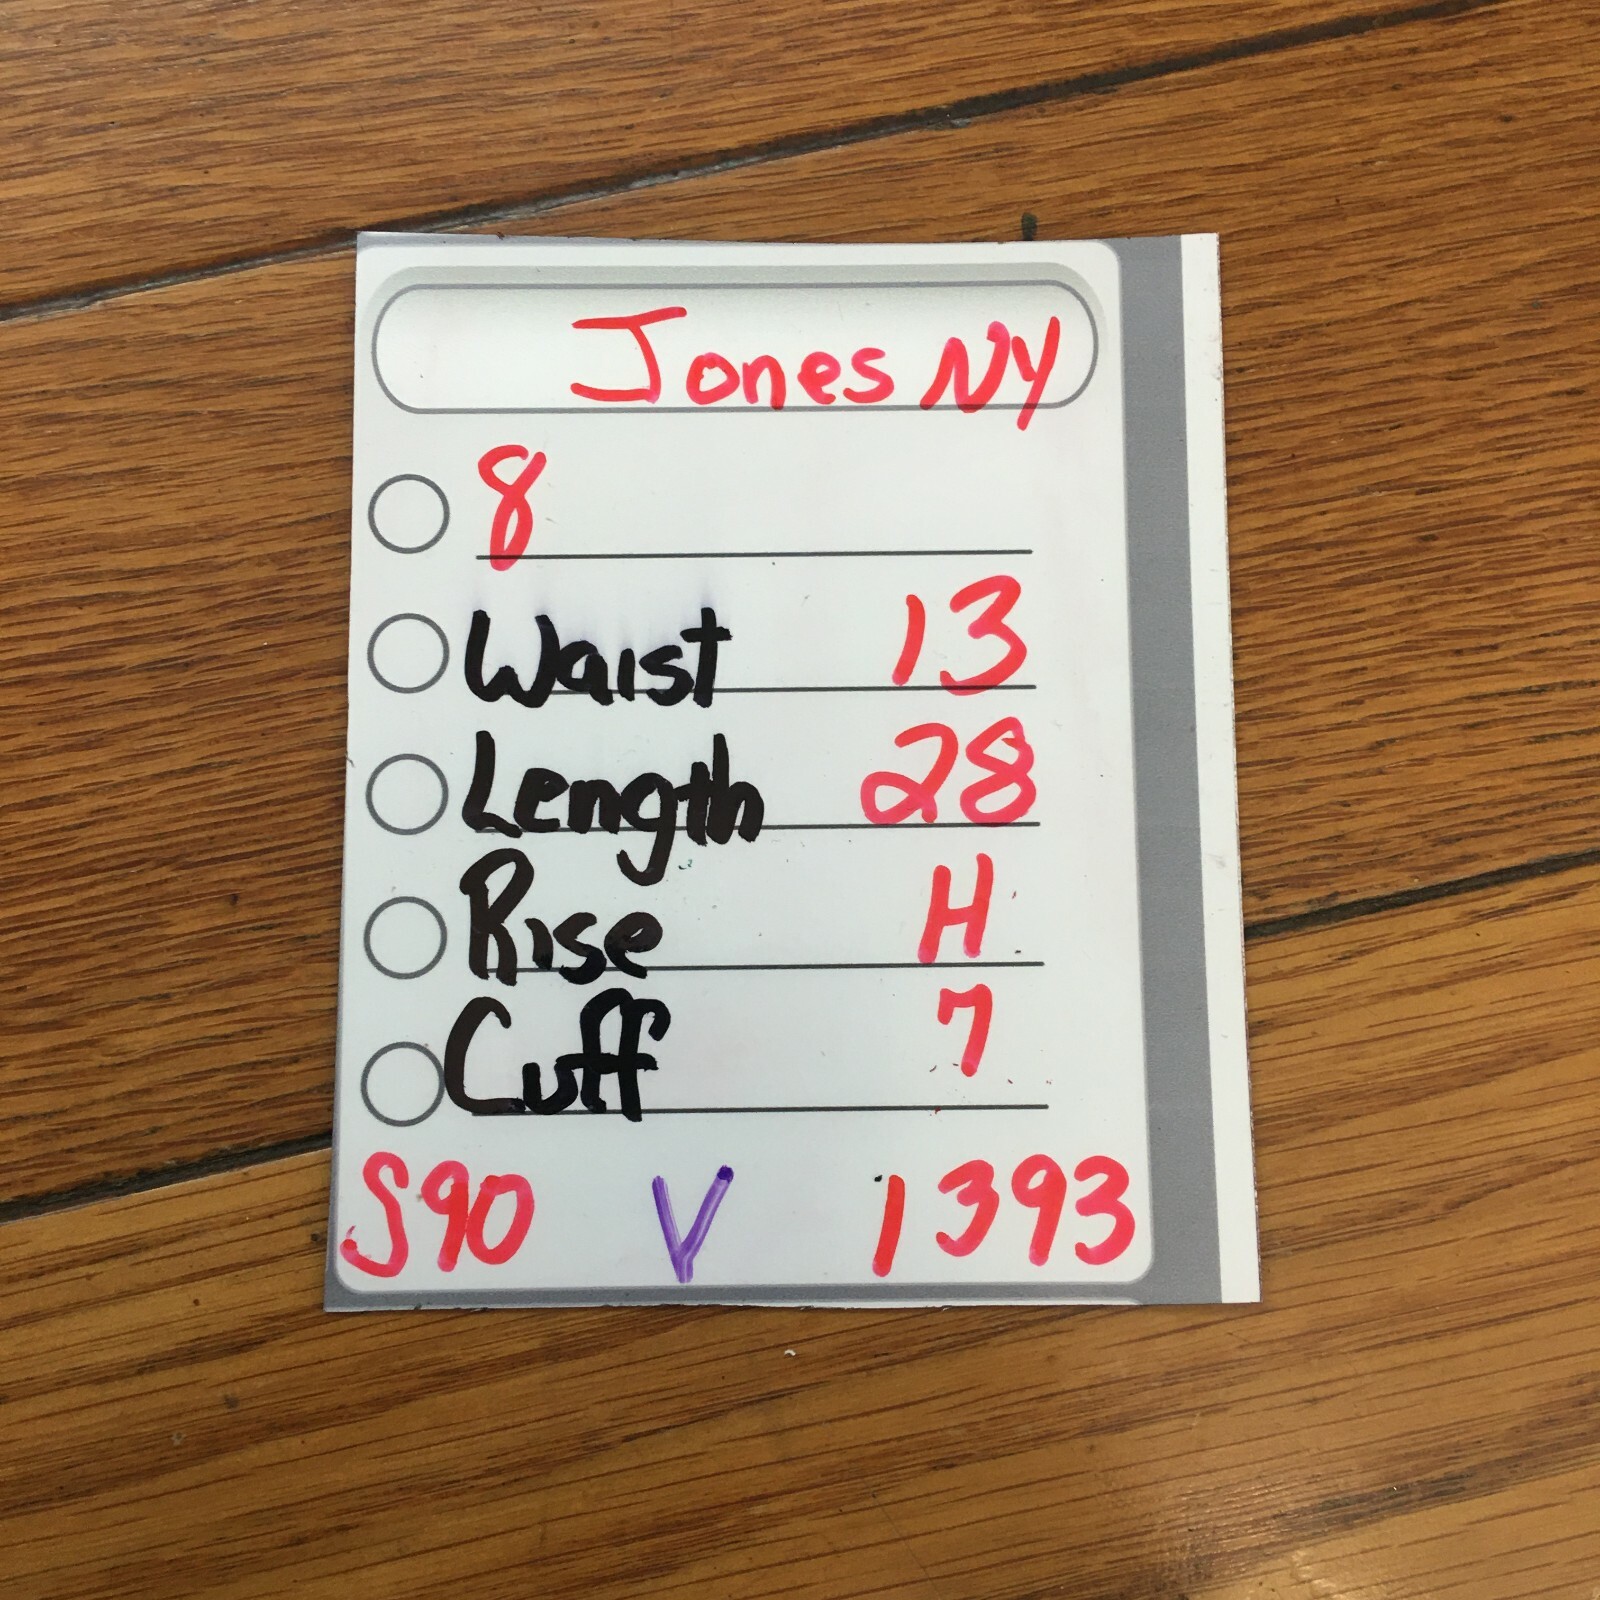 Jones NY
8
Waist 13
Length 28
Rise H
Cuff 7
S90 V 1393